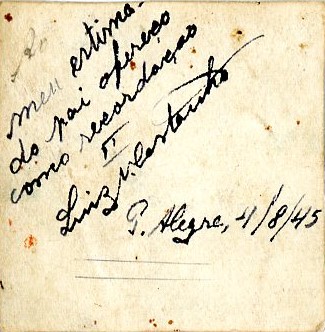 Ao
meu estima-
do pai ofereço
como recordação
Luiz
P. Alegre, 4/8/45